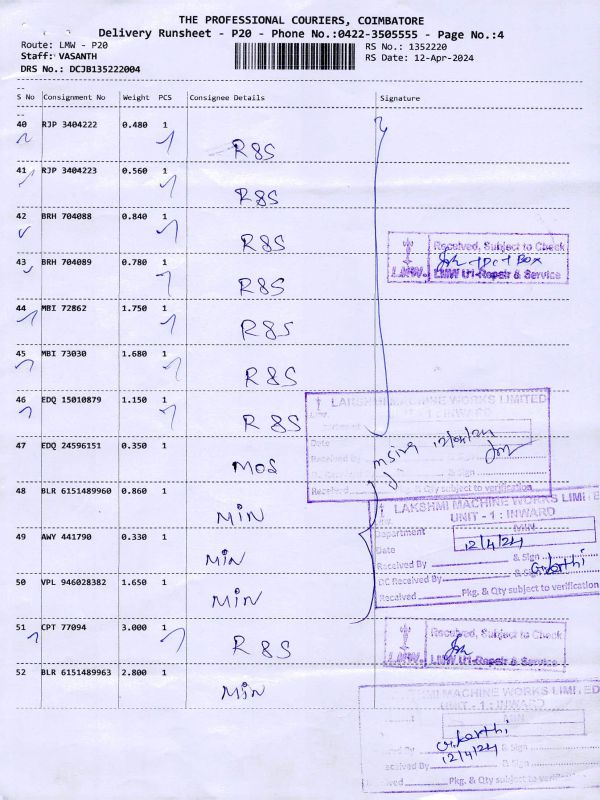 THE PROFESSIONAL COURIERS, COIMBATORE
Delivery Runsheet - P20 - Phone No.:0422-3505555 - Page No.:4
Route: LMW - P20
RS No.: 1352220
Staff: VASANTH
RS Date: 12-Apr-2024
DRS No.: DCJB135222004
S No Consignment No Weight PCS Consignee Details Signature
40 RJP 3404222 0.480 1
R&S
41 RJP 3404223 0.560 1
R&S
42 BRH 704088 0.840 1
R&S
Received, Subject to Check
43 BRH 704089 0.780 1
LMW U1-Repair & Service
R&S
44 MBI 72862 1.750 1
R&S
45 MBI 73030 1.680 1
R&S
46 EDQ 15010879 1.150 1
LAKSHMI MACHINE WORKS LIMITED
UNIT - 1 : INWARD
R&S
Date
47 EDQ 24596151 0.350 1
Received By
MOS
& Sign
Received & Qty subject to verification
48 BLR 6151489960 0.860 1
LAKSHMI MACHINE WORKS LIMITE
UNIT - 1 : INWARD
MIN
Department MIN
49 AWY 441790 0.330 1
Date 12/4/24
MIN
Received By & Sign
DC Received By & Sign G.karthi
50 VPL 946028382 1.650 1
Received Pkg. & Qty subject to verification
MIN
51 CPT 77094 3.000 1
Received, Subject to Check
R&S
LMW U1-Repair & Service
52 BLR 6151489963 2.800 1
MIN
LAKSHMI MACHINE WORKS LIMITED
UNIT - 1 : INWARD
MIN
G.karthi
Received By & Sign
12/4/24
Received By & Sign
Received Pkg. & Qty subject to verification